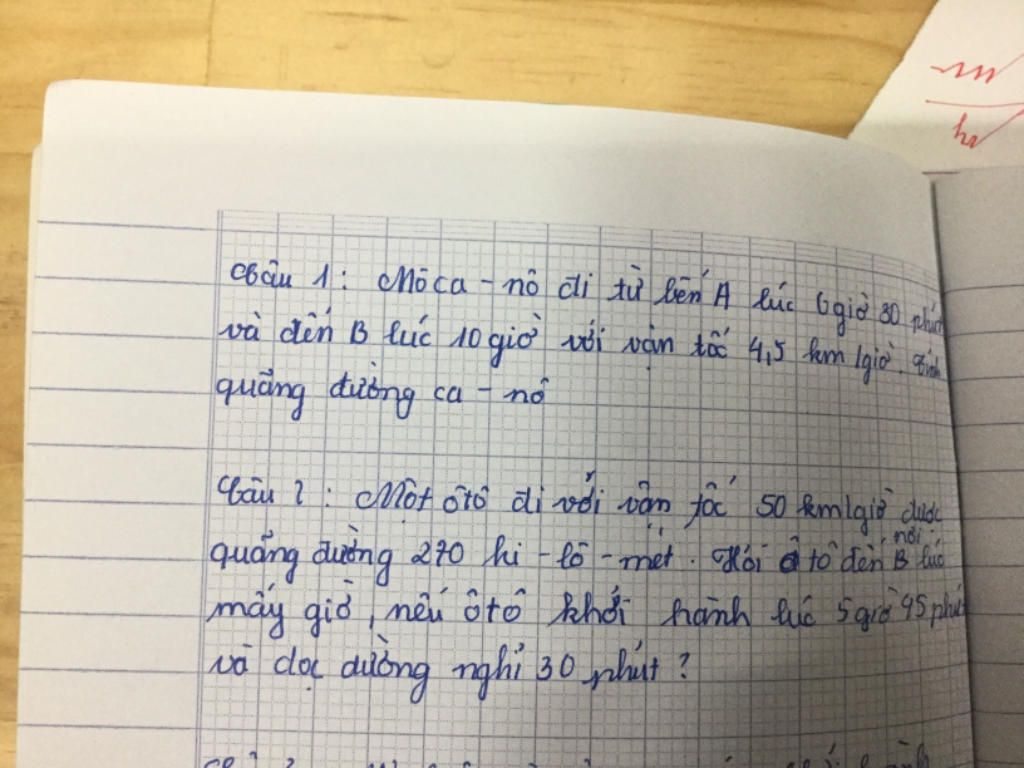 Câu 1: Mô ca - nô đi từ bến A lúc 6 giờ 30 phút
và đến B lúc 10 giờ với vận tốc 4,5 km/giờ. Tính
quãng đường ca - nô
Câu 2: Một ôtô đi với vận tốc 50 km/giờ được
quãng đường 270 ki - lô - mét. Hỏi ô tô đến nơi B lúc
mấy giờ, nếu ôtô khởi hành lúc 5 giờ 45 phút
và dọc đường nghỉ 30 phút?